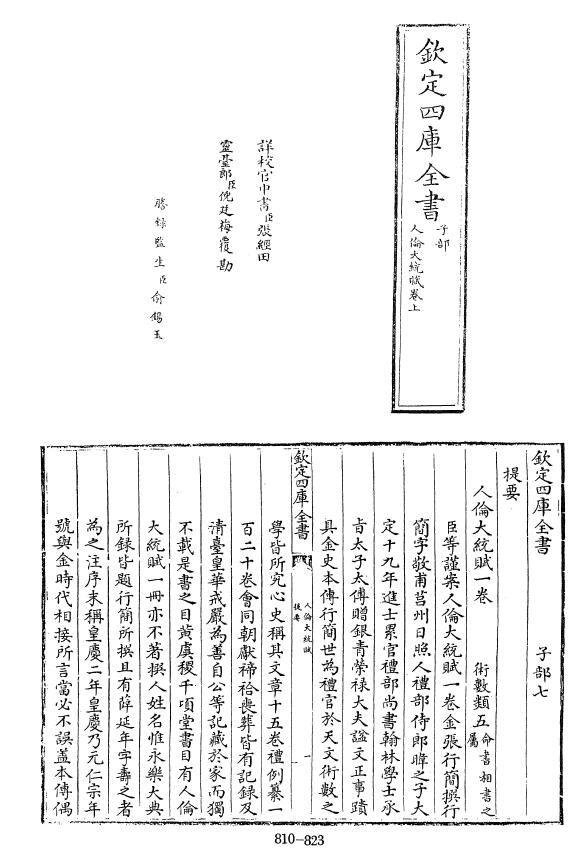 欽定四庫全書
子部
人倫大統賦卷上
詳校官中書臣張經田
靈臺郎臣倪廷梅覆勘
謄録監生臣俞錫玉
欽定四庫全書
子部七
提要
人倫大統賦一卷
術數類五
命書相書之
屬
臣等謹案人倫大統賦一卷金張行簡撰行
簡字敬甫莒州日照人禮部侍郎暐之子大
定十九年進士累官禮部尚書翰林學士承
旨太子太傅贈銀青榮禄大夫諡文正事蹟
具金史本傳行簡世為禮官於天文術數之
欽定四庫全書
人倫大統賦
提要
一
學皆所究心史稱其文章十五卷禮例纂一
百二十卷會同朝獻禘祫喪葬皆有記録及
清臺皇華戒嚴為善自公等記藏於家而獨
不載是書之目黄虞稷千頃堂書目有人倫
大統賦一冊亦不著撰人姓名惟永樂大典
所録皆題行簡所撰且有薛延年字壽之者
為之注序末稱皇慶二年皇慶乃元仁宗年
號與金時代相接所言當必不誤蓋本傳偶
810-823